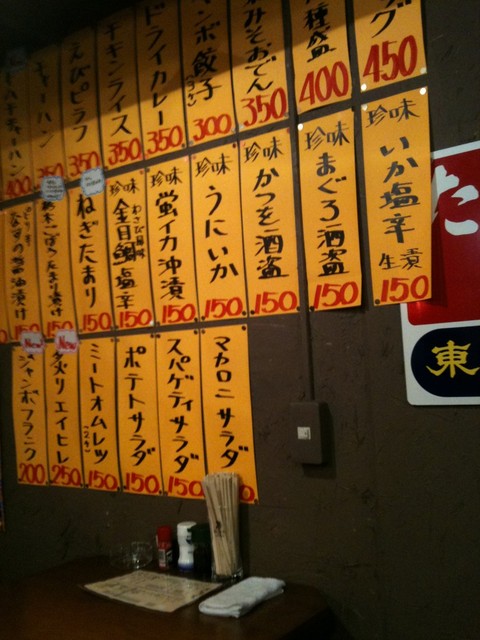 グ
450
種盛
400
みそおでん
350
ンボ餃子
300
ドライカレー
350
チキンライス
350
えびピラフ
350
チャーハン
350
チャーハン
400
珍味
いか塩辛
生漬
150
珍味
まぐろ酒盗
150
珍味
かつを酒盗
150
珍味
うにいか
150
珍味
蛍イカ沖漬
150
珍味
わさび風味
金目鯛塩辛
150
ねぎたまり
150
たまり漬け
150
なすの醤油漬け
150
マカロニサラダ
150
スパゲティサラダ
150
ポテトサラダ
150
ミートオムレツ
150
New
炙りエイヒレ
250
New
ジャンボフランク
200
た
東